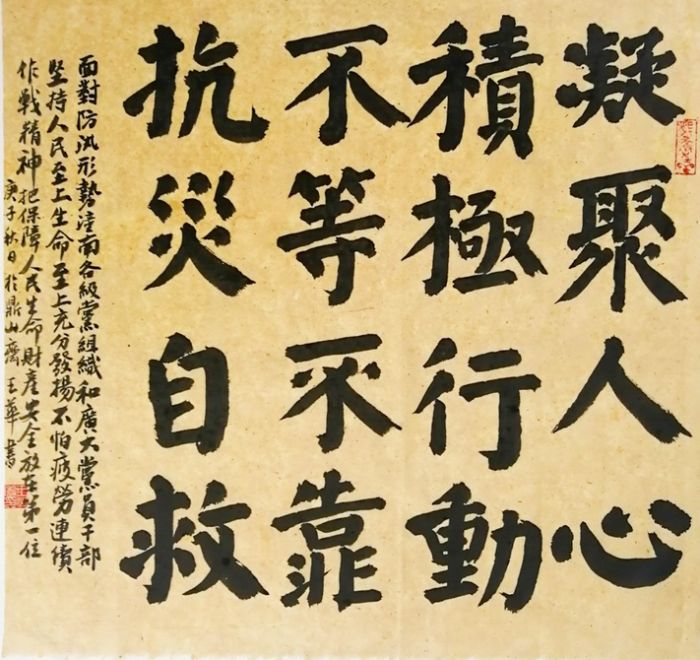 凝聚人心
積極行動
不等不靠
抗災自救
面對防汛形勢潼南各級黨組織和廣大黨員干部
堅持人民至上生命至上充分發揚不怕疲勞連續
作戰精神把保障人民生命財產安全放在第一位
庚子秋日於鼎山齋王華書